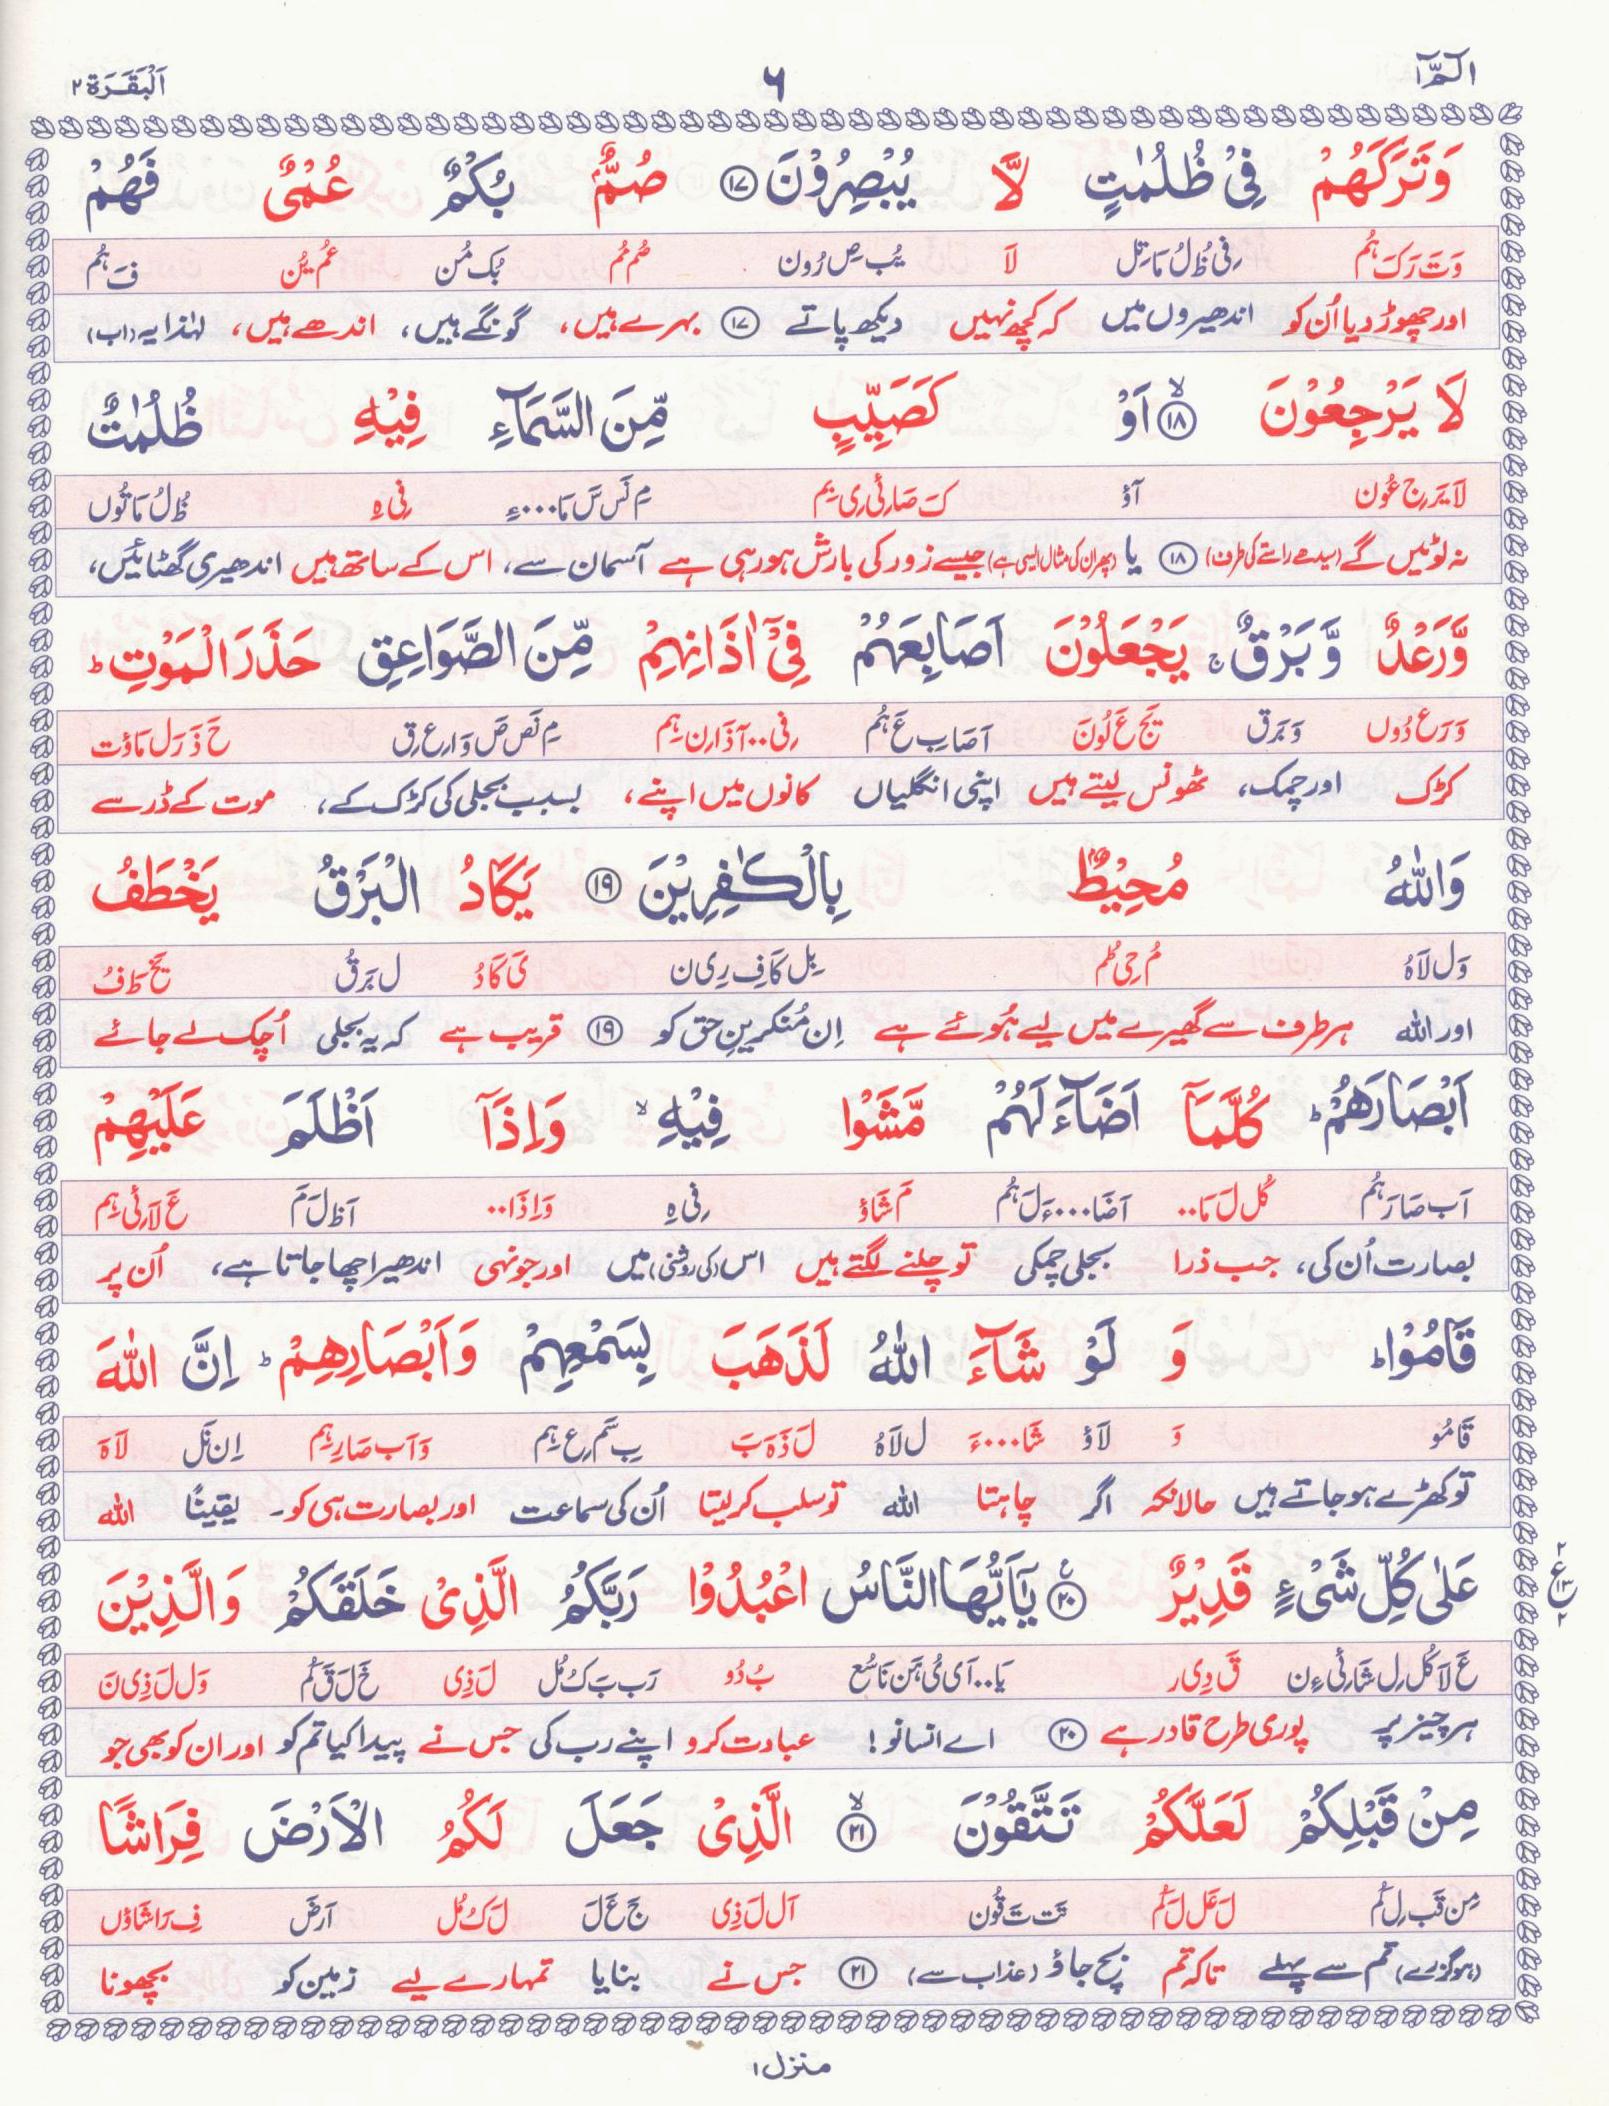 الٓمّٓ ١ ٦ اَلْبَقَرَة ٢
وَتَرَكَهُمْ فِىْ ظُلُمٰتٍ لَّا يُبْصِرُوْنَ ١٧ صُمٌّۢ بُكْمٌ عُمْىٌ فَهُمْ
وَتَ رَكَ ہُم فِی ظُلُ مَاتِل لَا یُب صِ رُون صُم مُم بُک مُن عُم یُن فَ ہُم
اور چھوڑ دیا اُن کو اندھیروں میں کہ کچھ نہیں دیکھ پاتے ١٧ بہرے ہیں، گونگے ہیں، اندھے ہیں، لہٰذا یہ (اب)
لَا يَرْجِعُوْنَ ۙ١٨ اَوْ كَصَيِّبٍ مِّنَ السَّمَآءِ فِيْهِ ظُلُمٰتٌ
لَا یَر جِ عُون اَوْ کَ صَائی یِ بِم مِ نَس سَ مَا۰۰۰ءِ فِی ہِ ظُ لُ مَا تُوں
نہ لوٹیں گے (سیدھے راستے کی طرف) ١٨ یا (پھر ان کی مثال ایسی ہے) جیسے زور کی بارش ہو رہی ہے آسمان سے، اس کے ساتھ ہیں اندھیری گھٹائیں،
وَّرَعْدٌ وَّبَرْقٌ ۚ يَجْعَلُوْنَ اَصَابِعَهُمْ فِىْٓ اٰذَانِهِمْ مِّنَ الصَّوَاعِقِ حَذَرَ الْمَوْتِ ؕ
وَ رَع دُوں وَ بَرق یَج عَ لُونَ اَصَابِ عَ ہُم فِی۰۰آذَانِ ہِم مِ نَص صَ وَاعِ قِ حَ ذَ رَل مَاوْت
کڑک اور چمک، ٹھونس لیتے ہیں اپنی انگلیاں کانوں میں اپنے، بسبب بجلی کی کڑک کے، موت کے ڈر سے
وَاللّٰهُ مُحِيْطٌۢ بِالْكٰفِرِيْنَ ١٩ يَكَادُ الْبَرْقُ يَخْطَفُ
وَل لَاہُ مُ حِی طُم بِل کَافِ رِی ن یَ کَادُ ل بَرقُ یَخ طَفُ
اور اللہ ہر طرف سے گھیرے میں لیے ہُوئے ہے اِن مُنکرینِ حق کو ١٩ قریب ہے کہ یہ بجلی اُچک لے جائے
اَبْصَارَهُمْ ؕ كُلَّمَآ اَضَآءَ لَهُمْ مَّشَوْا فِيْهِ ۙ وَاِذَآ اَظْلَمَ عَلَيْهِمْ
اَب صَارَ ہُم کُل لَ مَا۰۰ اَضَا۰۰۰ءَ لَ ہُم مَ شَاوْ فِی ہِ وَاِذَا۰۰ اَظ لَ مَ عَ لَائی ہِم
بصارت اُن کی، جب ذرا بجلی چمکی تو چلنے لگتے ہیں اس (کی روشنی) میں اور جونہی اندھیرا چھا جاتا ہے، اُن پر
قَامُوْا ؕ وَ لَوْ شَآءَ اللّٰهُ لَذَهَبَ بِسَمْعِهِمْ وَاَبْصَارِهِمْ ؕ اِنَّ اللّٰهَ
قَامُو وَ لَاوْ شَا۰۰۰ءَ ل لَاہُ لَ ذَہَ بَ بِ سَم عِ ہِم وَ اَب صَارِ ہِم اِن نَل لَاہَ
تو کھڑے ہو جاتے ہیں حالانکہ اگر چاہتا اللہ تو سلب کر لیتا اُن کی سماعت اور بصارت ہی کو۔ یقیناً اللہ
عَلٰى كُلِّ شَىْءٍ قَدِيْرٌ ٢٠ ع يٰٓاَيُّهَا النَّاسُ اعْبُدُوْا رَبَّكُمُ الَّذِىْ خَلَقَكُمْ وَالَّذِيْنَ
عَ لَا کُل لِ شَائی ءِن قَ دِی ر یَا۰۰اَی یُ ہَن نَاسُع بُ دُو رَب بَ کُ مُل لَ ذِی خَ لَ قَ کُم وَل لَ ذِی نَ
ہر چیز پر پوری طرح قادر ہے ٢٠ اے انسانو! عبادت کرو اپنے رب کی جس نے پیدا کیا تم کو اور ان کو بھی جو
مِنْ قَبْلِكُمْ لَعَلَّكُمْ تَتَّقُوْنَ ۙ٢١ الَّذِىْ جَعَلَ لَكُمُ الْاَرْضَ فِرَاشًا
مِن قَب لِ کُم لَ عَل لَ کُم تَت تَ قُون اَل لَ ذِی جَ عَ لَ لَ کُ مُل اَرضَ فِ رَاشَاوں
(ہو گزرے) تم سے پہلے تاکہ تم بچ جاؤ (عذاب سے) ٢١ جس نے بنایا تمہارے لیے زمین کو بچھونا
منزل ١